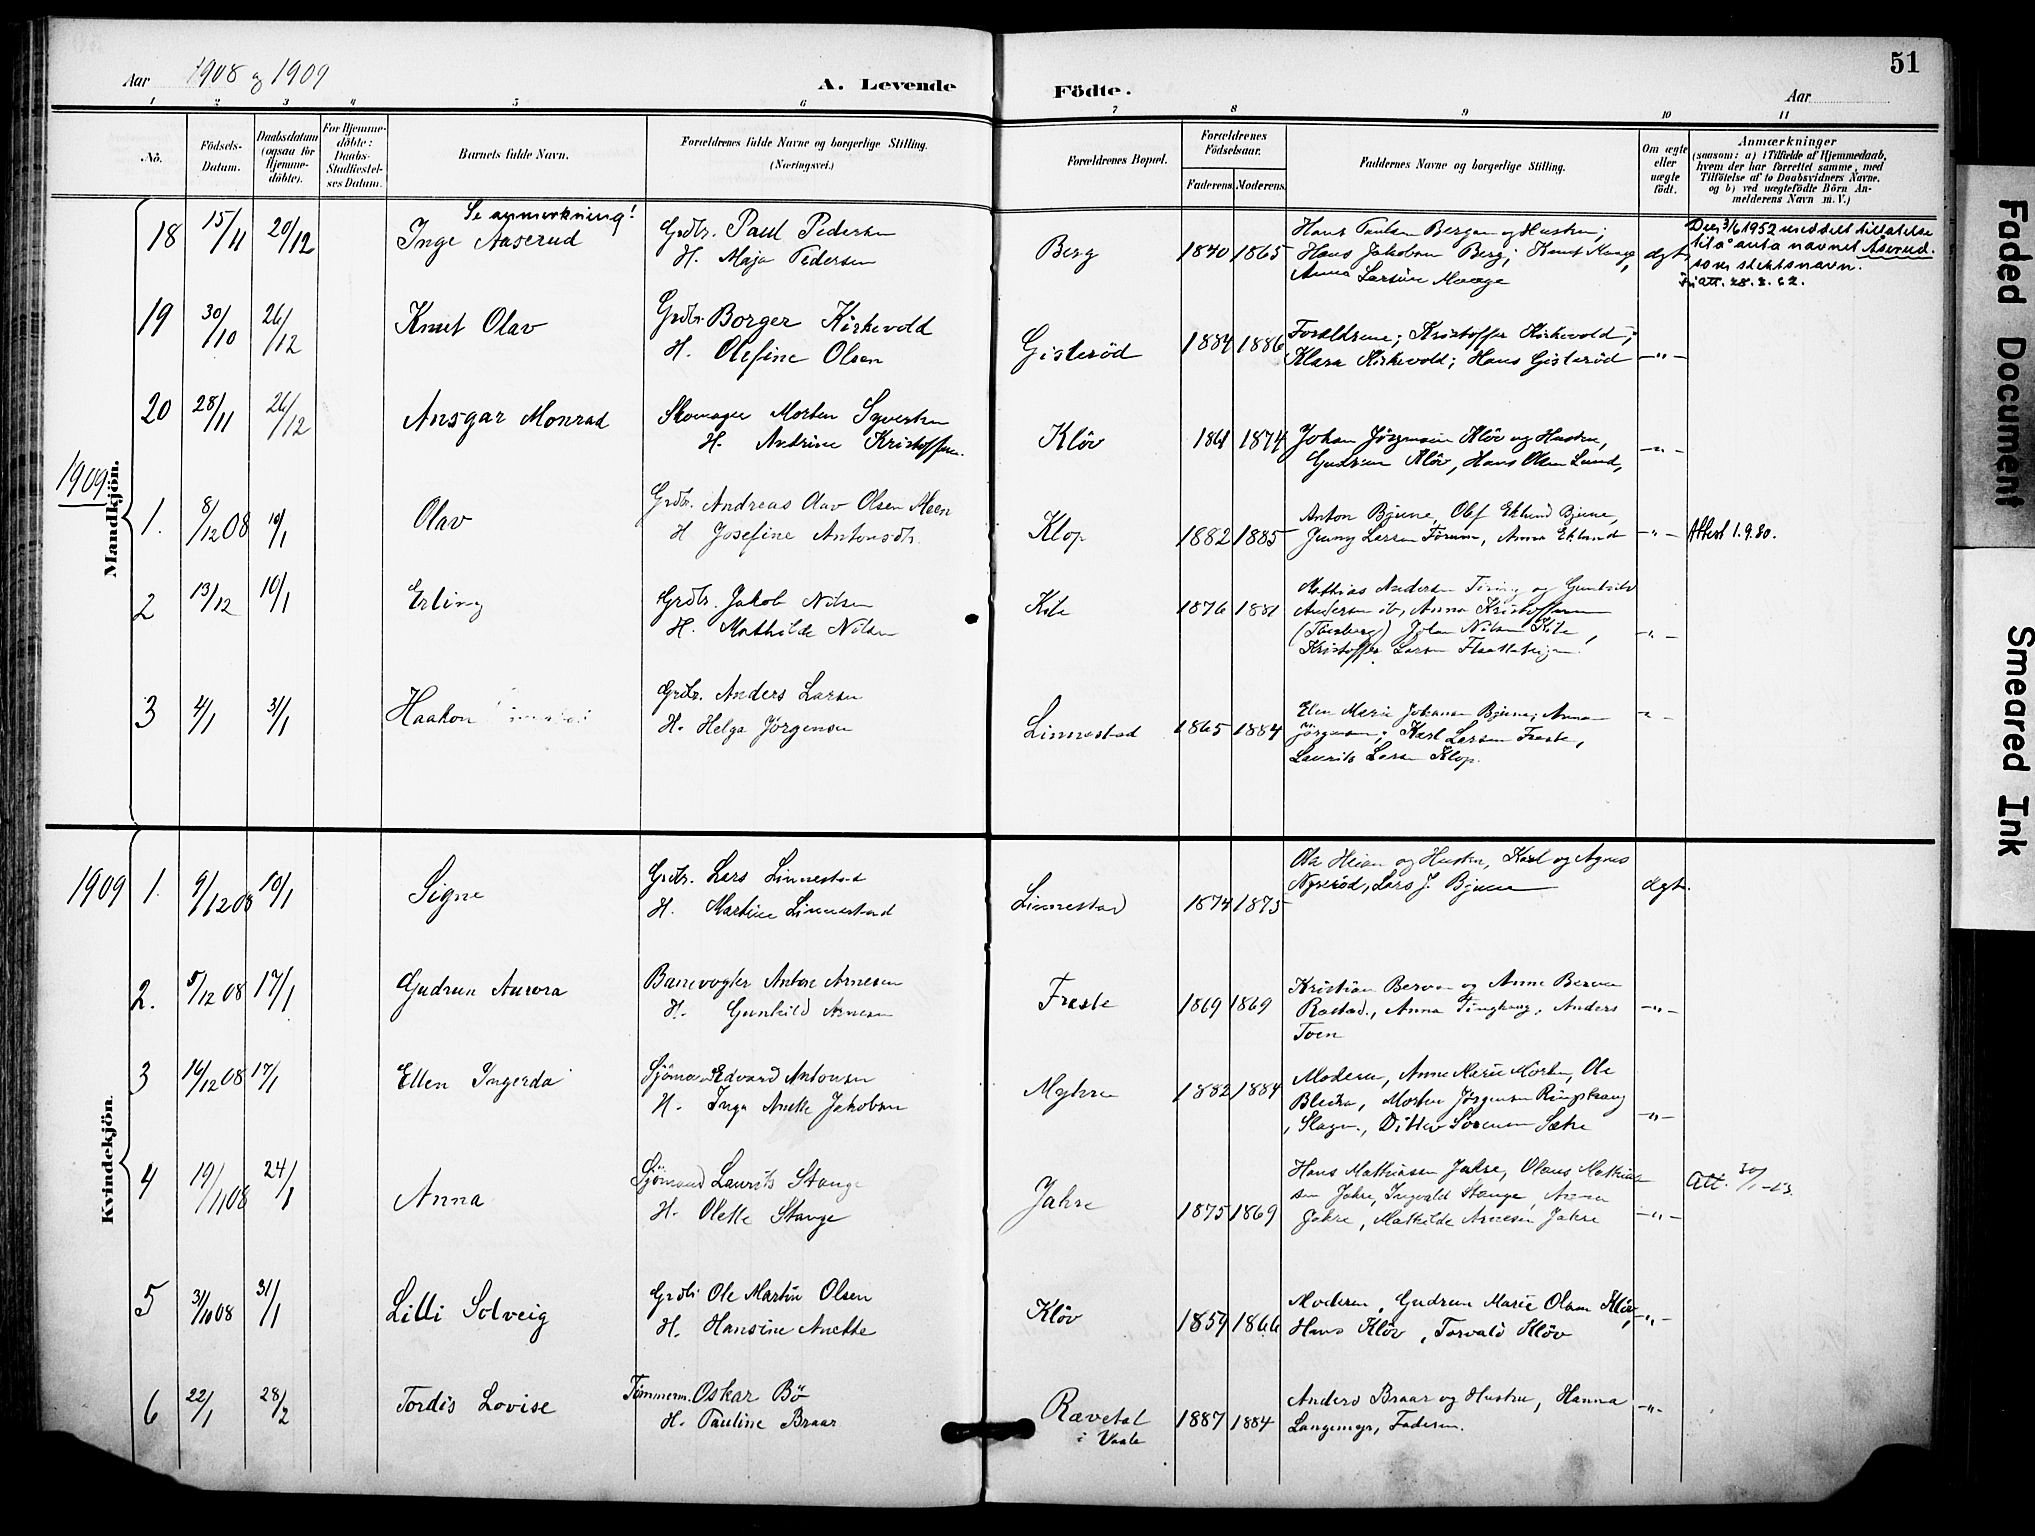 51
Aar 1908 og 1909
A. Levende Födte.
Aar
1 2 3 4 5 6 7 8 9 10 11
No.
Födsels-Datum.
Daabsdatum (ogsaa for Hjemme-döbte).
For Hjemme-döbte: Daabs-Stadfæstel-ses Datum.
Barnets fulde Navn.
Forældrenes fulde Navne og borgerlige Stilling.
(Næringsvei.)
Forældrenes Bopæl.
Forældrenes Födselsaar.
Faderens. Moderens.
Faddernes Navne og borgerlige Stilling.
Om ægte eller uægte födt.
Anmærkninger
(saasom: a) i Tilfælde af Hjemmedaab,
hvem der har forrettet samme, med
Tilföielse af to Daabsvidners Navne.
og b) ved uægtefödte Börn An-
melderens Navn m. V.)
Mandkjön.
18 15/11 20/12 Inge Aaserud Se anmerkning!
Grdbr. Paul Pedersen
H. Maja Pedersen
Berg 1840 1865
Hans Paulsen Bergan og Hustru;
Hans Jakobsen Berg; Knut Kaage,
Anna Larsine Maage
ægte
Den 3/6 1952 meddelt tillatelse
til å anta navnet Åserud
som slektsnavn.
Att. 28.8.62.
19 30/10 26/12 Knut Olav
Grdbr. Borger Kirkevold
H. Olefine Olsen
Gisteröd 1884 1886
Forældrene; Kristoffer Kirkevold;
Klara Kirkevold; Hans Gisteröd
-"-
20 28/11 26/12 Ansgar Monrad
Skomager Morten Syvertsen
H. Andrine Kristoffersen.
Klöv 1861 1874
Johan Jörgensen Klöv og Hustru,
Gudrun Klöv, Hans Olsen Lund,
-"-
1909
1. 8/12 08 10/1 Olav
Grdbr. Andreas Olav Olsen Meen
H Josefine Antonsdtr.
Klop 1882 1885
Anton Bjune, Olef Eklund Bjune,
Jenny Larsen Forum, Anna Eklund
-"- Attest 1.9.80.
2 13/12 10/1 Erling
Grdbr. Jakob Nilsen
H. Mathilde Nilsen
Kile 1876 1881
Mathias Andersen og Gunhild
Andersen ib, Anna Kristoffersen
(Tönsberg) Johan Nilsen Kile,
Kristoffer Larsen
-"-
3 4/1 31/1 Haakon
Grdbr. Anders Larsen
H. Helga Jörgensen
Linnestad 1865 1884
Elen Marie Johansen Bjune; Anna
Jörgensen; Karl Larsen Freste,
Laurits Larsen Klop.
-"-
Kvindekjön.
1909 1. 9/12 08 10/1 Signe
Grdbr. Lars Linnestad
H. Martine Linnestad
Linnestad 1874 1875
Ole Heian og Hustru, Karl og Agnes
Nyseröd, Lars J. Bjune
ægte.
2. 5/12 08 17/1 Gudrun Aurora
Banevogter Anton Arnesen
H. Gunhild Arnesen
Freste 1869 1869
Kristian Berven og Anne Berven
Rastad., Anna Tinghaug, Anders
Toen
-"-
3 16/12 08 17/1 Ellen Ingerda
Sjömand Edvard Antonsen
H. Inga Anette Jakobsen
Myhre 1882 1884
Moderen, Anne Marie Morten, Ole
Bleka, Morten Jörgensen Ringshaug
, Slagen., Ditlev Sörensen Sætre
-"-
4 19/11 08 24/1 Anna
Sjömand Laurits Stange
H. Olette Stange
Jahre 1875 1869
Hans Mathiasen Jahre, Olaus Mathias-
sen Jahre, Ingvald Stange, Anna
Jahre, Mathilde Arnesen Jahre
-"- Att.
5 31/10 08 31/1 Lilli Solveig
Grdbr Ole Martin Olsen
H. Hansine Anette
Klöv 1859 1866
Moderen, Gudrun Marie Olsen Klöv,
Hans Klöv, Torvald Klöv
-"-
6 22/1 28/2 Tordis Lovise
Tömmerm. Oskar Bö
H. Pauline Braar
Rævetal
i Vaale
1887 1884
Anders Braar og Hustru, Hanna
Langemyr, Faderen.
-"-
Faded Document
Smeared Ink